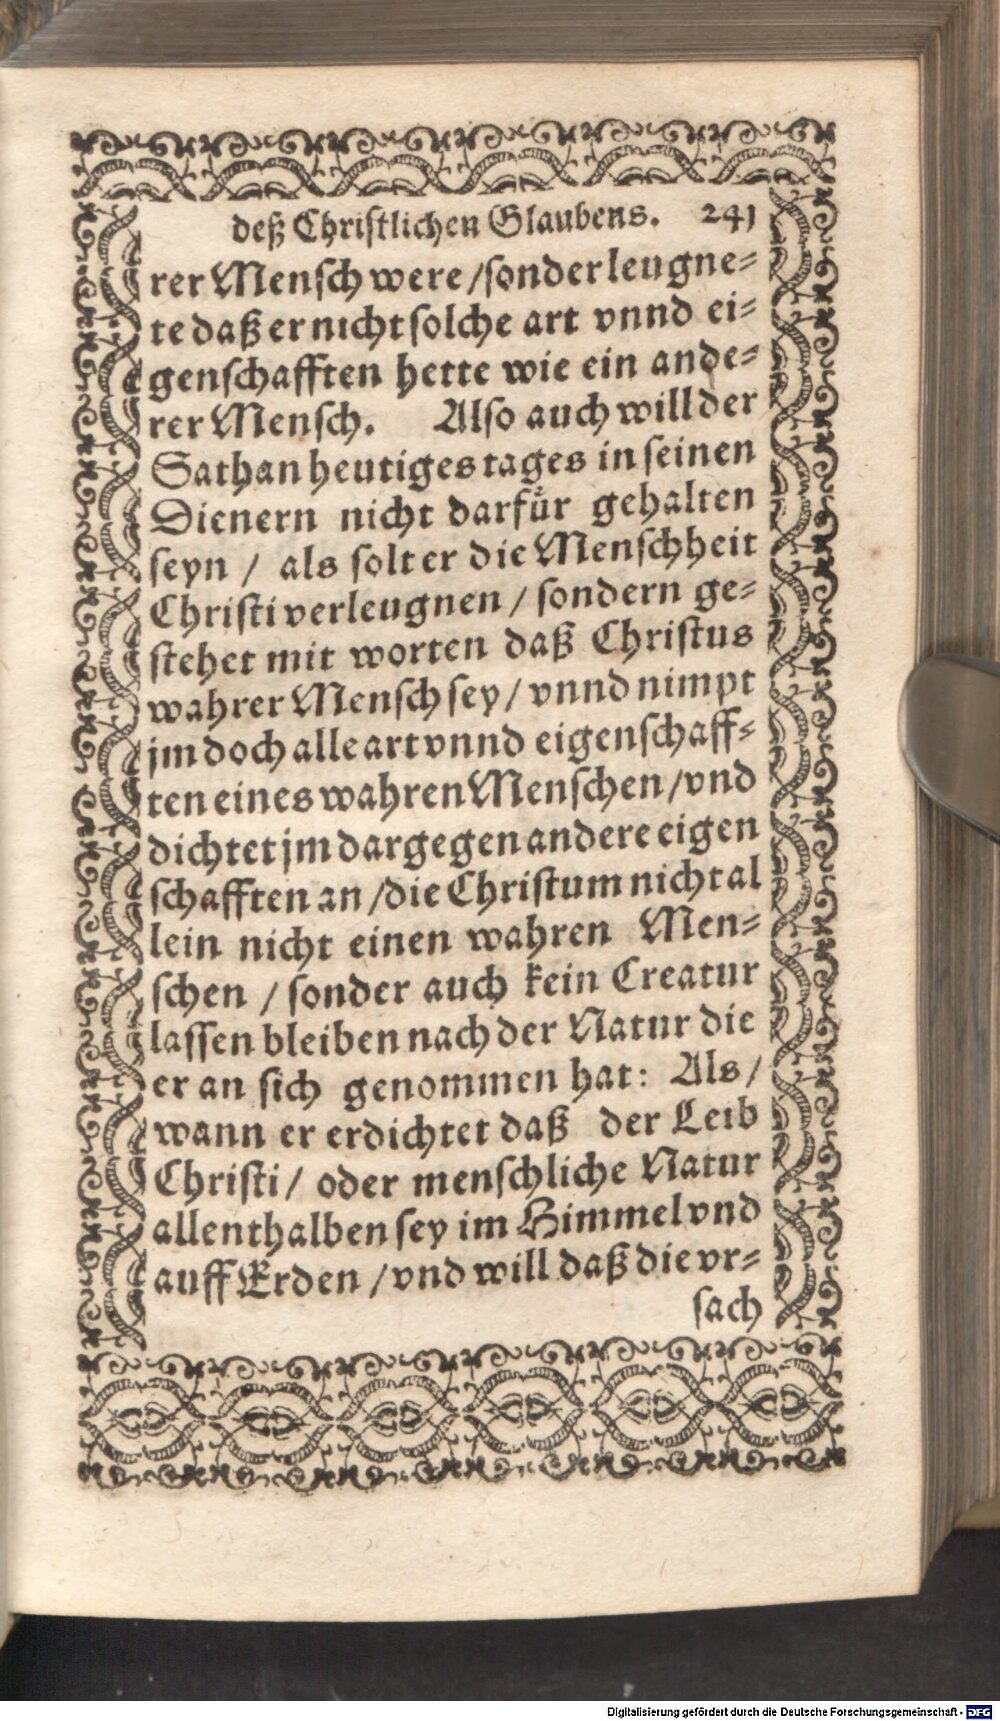 deß Christlichen Glaubens. 241
rer Mensch were / sonder leugne=
te daß er nicht solche art vnnd ei=
genschafften hette wie ein ande=
rer Mensch. Also auch will der
Sathan heutiges tages in seinen
Dienern nicht darfuͤr gehalten
seyn / als solt er die Menschheit
Christi verleugnen / sondern ge=
stehet mit worten daß Christus
wahrer Mensch sey / vnnd nimpt
jm doch alle art vnnd eigenschaff=
ten eines wahren Menschen / vnd
dichtet jm dargegen andere eigen
schafften an / die Christum nicht al
lein nicht einen wahren Men=
schen / sonder auch kein Creatur
lassen bleiben nach der Natur die
er an sich genommen hat: Als /
wann er erdichtet daß der Leib
Christi / oder menschliche Natur
allenthalben sey im Himmel vnd
auff Erden / vnd will daß die vr=
sach
Digitalisierung gefördert durch die Deutsche Forschungsgemeinschaft - DFG